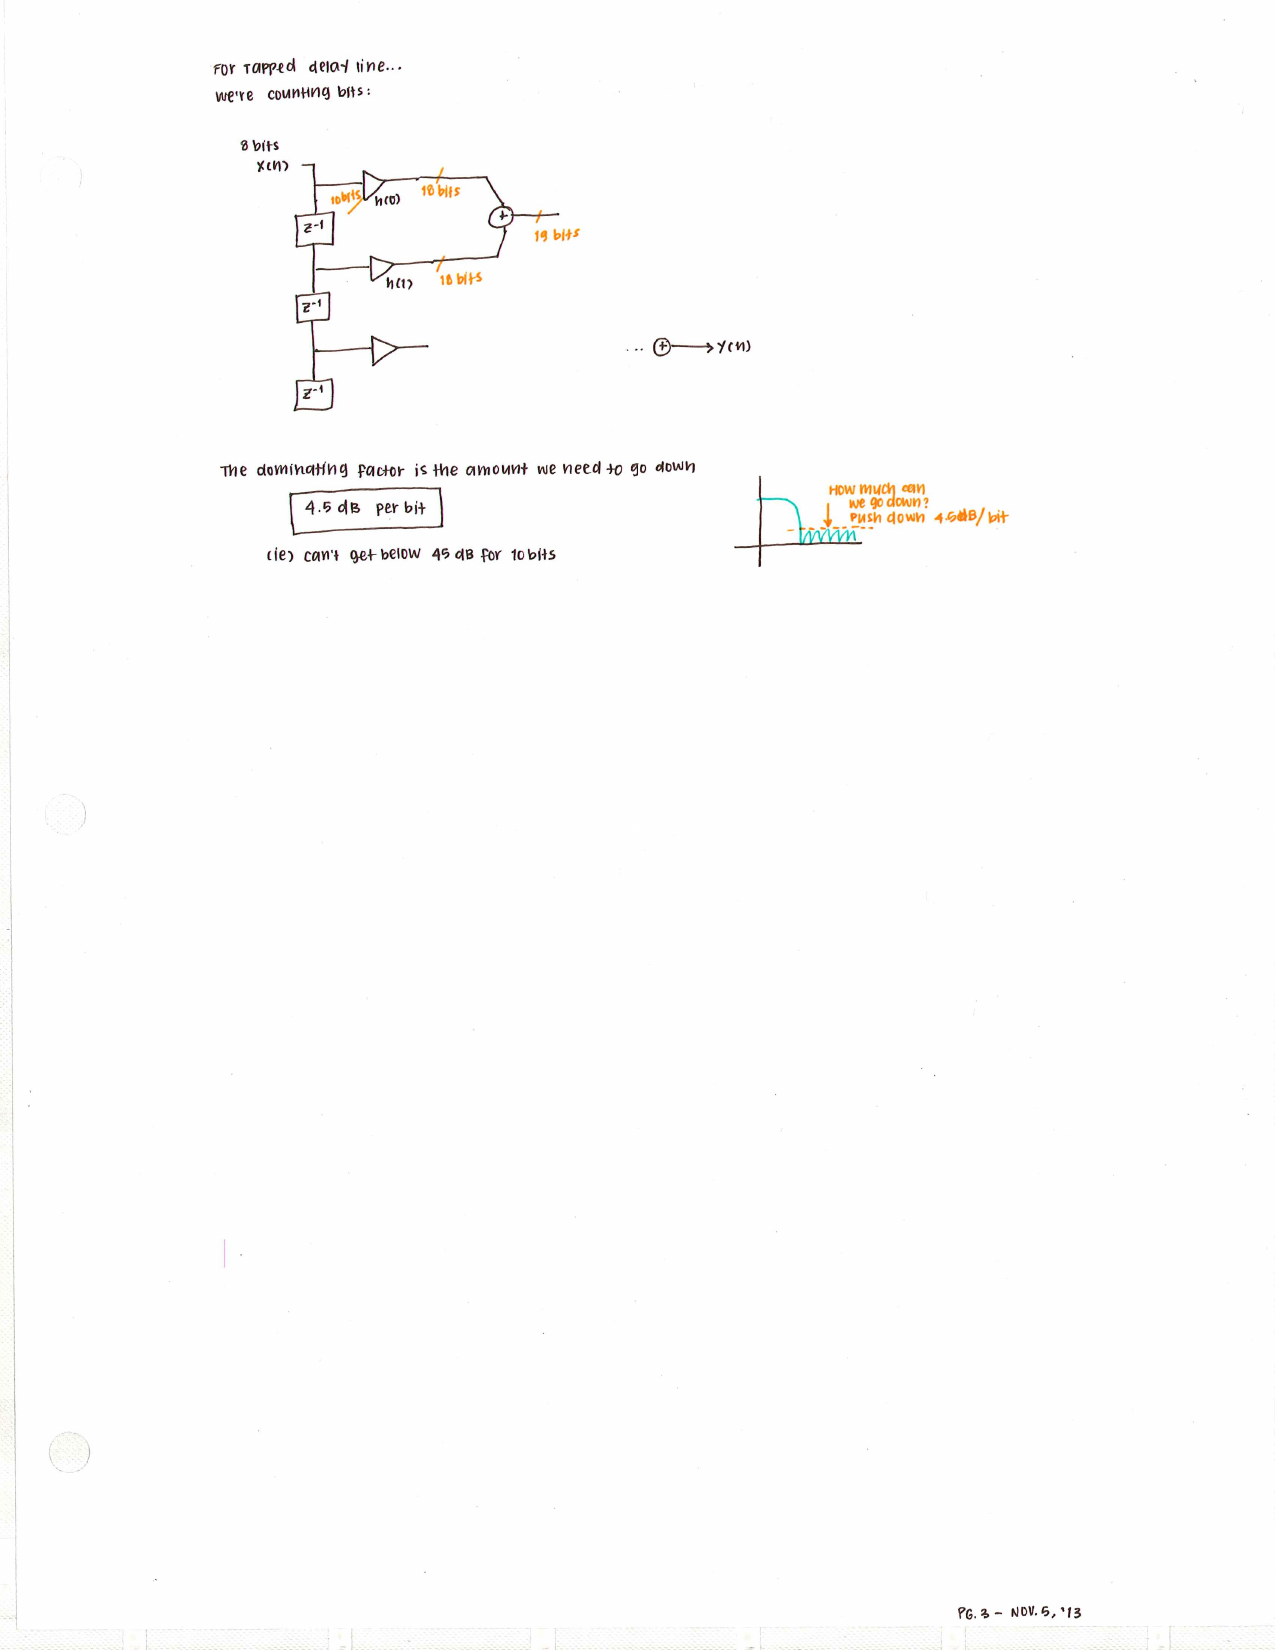 For Tapped delay line...
we're counting bits:
8 bits
x(n)
10bits
h(0)
18 bits
z-1
+
19 bits
h(1)
18 bits
z-1
... + y(n)
z-1
The dominating factor is the amount we need to go down
4.5 dB per bit
(ie) can't get below 45 dB for 10 bits
How much can
we go down?
Push down 4.5dB/bit
PG. 3 - NOV. 5, '13